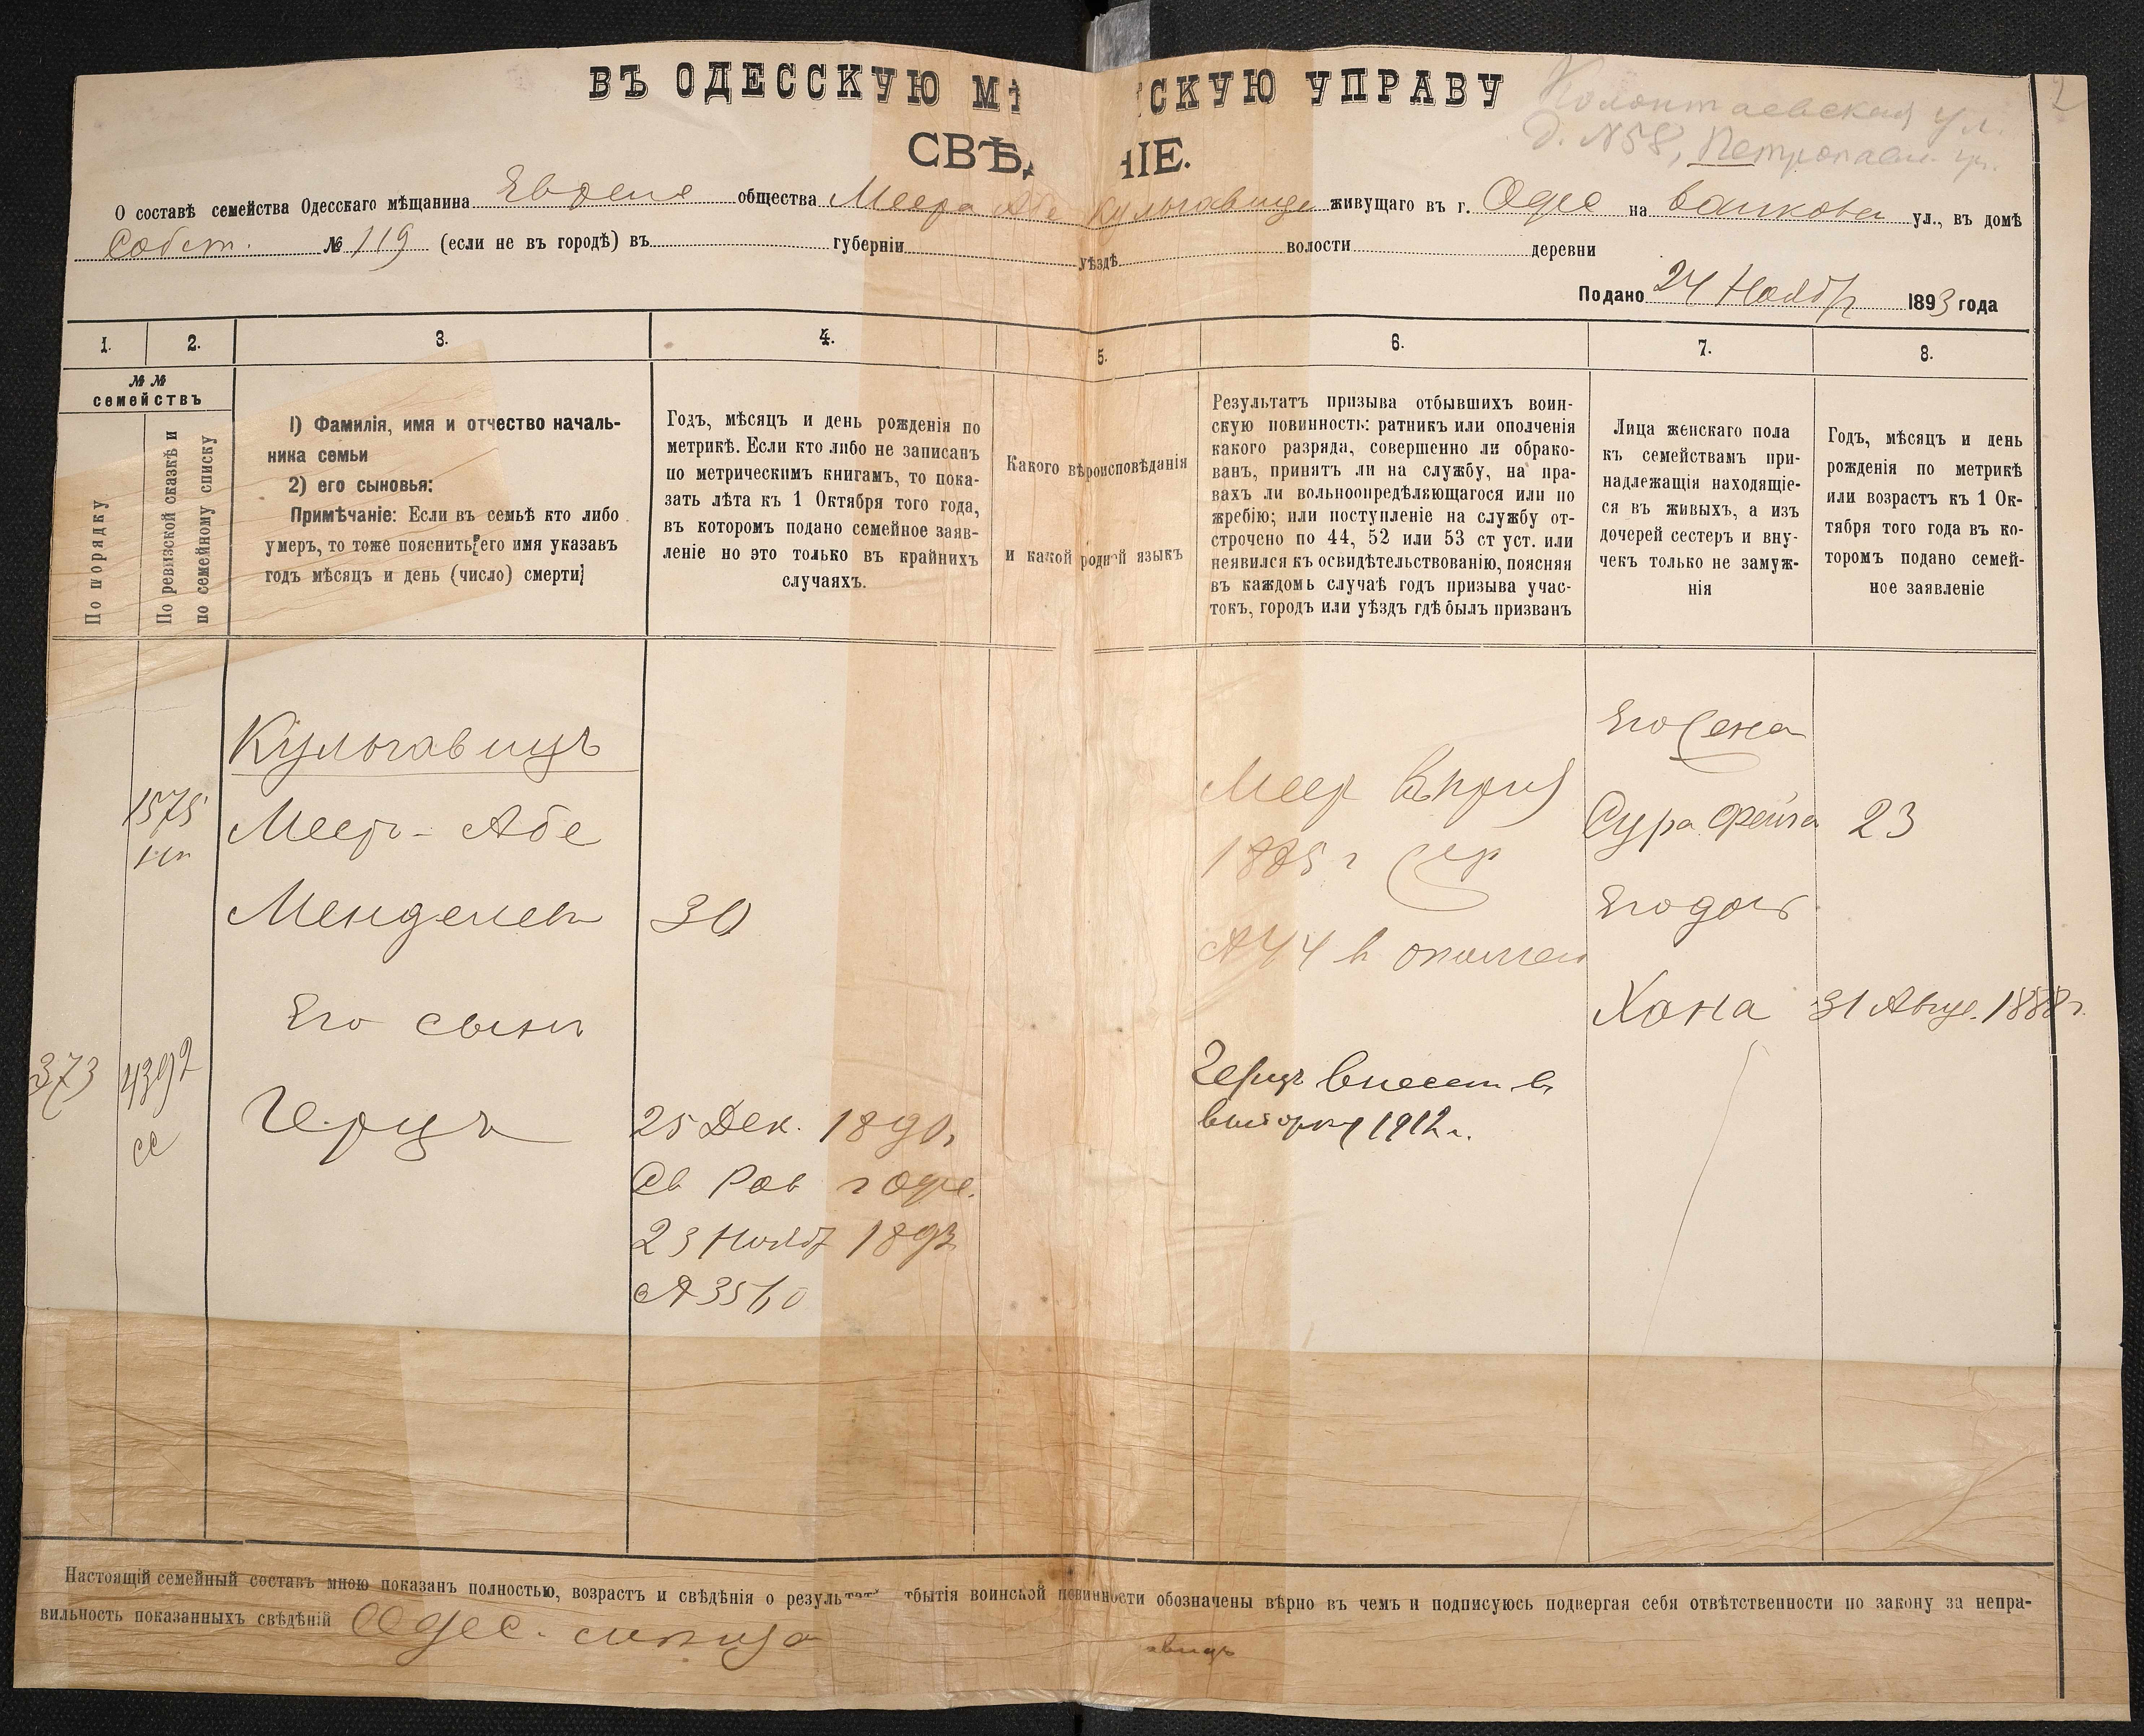 ВЪ ОДЕССКУЮ МѢ СКУЮ УПРАВУ
СВѢД НІЕ.
Колонтаевская ул.
д. №58, Петропавл.
2
О составѣ семейства Одесскаго мѣщанина Еврея общества Меера Абе Кульгавица живущаго въ г. Одес на ул., въ домѣ
Собст. № 119 (если не въ городѣ) въ губерніи уѣздѣ волости деревни
Подано 24 Ноябр 1893 года
1. 2. 3. 4. 5. 6. 7. 8.
№ №
семействъ
По порядку
По ревизской сказкѣ и
по семейному списку
1) Фамилія, имя и отчество началь-
ника семьи
2) его сыновья:
Примѣчаніе: Если въ семьѣ кто либо
умеръ, то тоже пояснить его имя указавъ
годъ мѣсяцъ и день (число) смерти
Годъ, мѣсяцъ и день рожденія по
метрикѣ. Если кто либо не записанъ
по метрическимъ книгамъ, то пока-
зать лѣта къ 1 Октября того года,
въ которомъ подано семейное заяв-
леніе но это только въ крайнихъ
случаяхъ.
Какого вѣроисповѣданія
и какой родной языкъ
Результатъ призыва отбывшихъ воин-
скую повинность: ратникъ или ополченія
какого разряда, совершенно ли обрако-
ванъ, принятъ ли на службу, на пра-
вахъ ли вольноопредѣляющагося или по
жребію; или поступленіе на службу от-
строчено по 44, 52 или 53 ст уст. или
неявился къ освидѣтельствованію, поясняя
въ каждомъ случаѣ годъ призыва учас-
токъ, городъ или уѣздъ гдѣ былъ призванъ
Лица женскаго пола
къ семействамъ при-
надлежащія находящіе-
ся въ живыхъ, а изъ
дочерей сестеръ и вну-
чекъ только не замуж-
нія
Годъ, мѣсяцъ и день
рожденія по метрикѣ
или возрастъ къ 1 Ок-
тября того года въ ко-
торомъ подано семей-
ное заявленіе
Кульгавицъ
1575
Мееръ-Абе
Менделевъ 30
Его сынъ
373 4392
сс
Герцъ
25 Дек. 1890г
Св Рав г Одес.
23 Ноябр 1893
№ 3560
Меер въ приз
1885 г
№ 44 в ополчен
Герцъ внесен въ
выборку 1912 г.
Его жена
Сура Фейга 23
Его дочь
Хана 31 Авгус. 1888 г.
Настоящій семейный составъ мною показанъ полностью, возрастъ и свѣдѣнія о результат тбытія воинской повинности обозначены вѣрно въ чемъ и подписуюсь подвергая себя отвѣтственности по закону за непра-
вильность показанныхъ свѣдѣній Одес.
авицъ